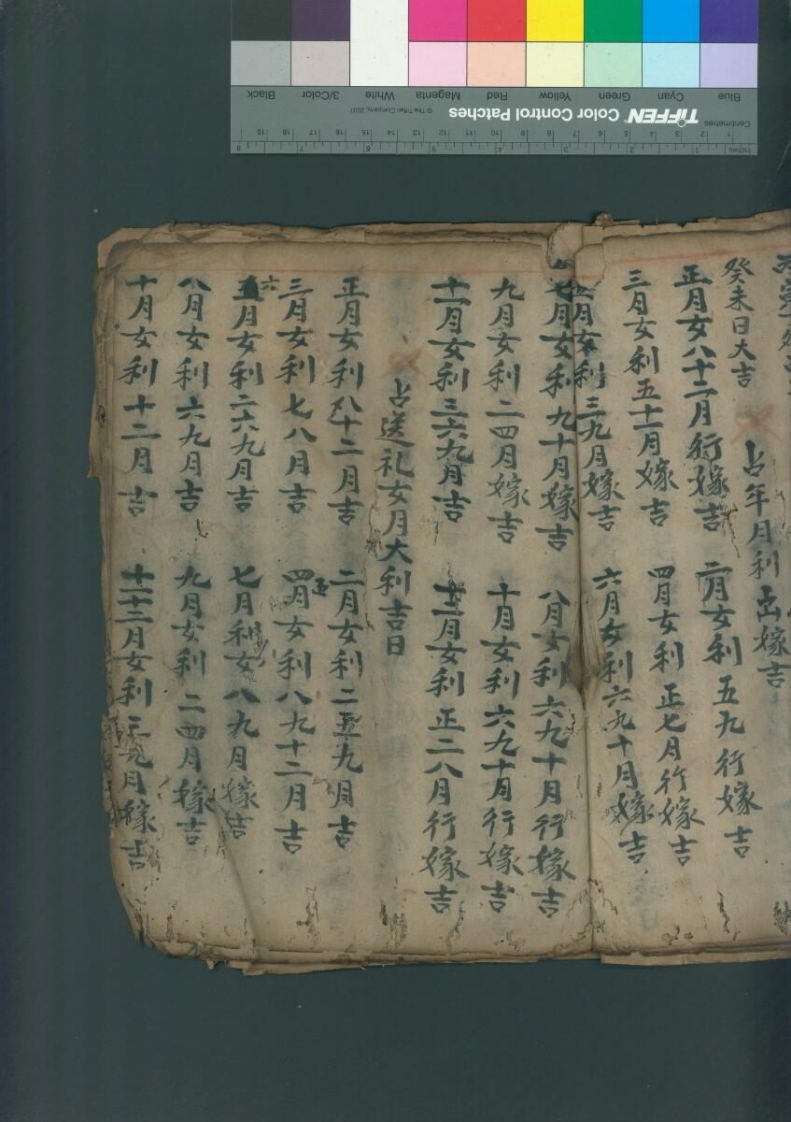 癸未日大吉
占年月利出嫁吉
正月女八十二月行嫁吉 二月女利五九行嫁吉
三月女利五十一月嫁吉 四月女利正七月行嫁吉
五月女利三九月嫁吉 六月女利六九十月嫁吉
七月女利九十月嫁吉 八月女利六九十月行嫁吉
九月女利二四月嫁吉 十月女利六九十月行嫁吉
十一月女利三六九月吉 十二月女利正二八月行嫁吉
占送礼女月大利吉日
正月女利八十二月吉 二月女利二五九月吉
三月女利七八月吉 四月女利八九十二月吉
六月女利二六八九月吉 七月利女八九月嫁吉
八月女利六九月吉 九月女利二四月嫁吉
十月女利十二月吉 十一十二月女利三九月嫁吉
Blue Cyan Green Yellow Red Magenta White 3/Color Black
TIFFEN Color Control Patches
© The Tiffen Company, 2007
Centimetres
Inches